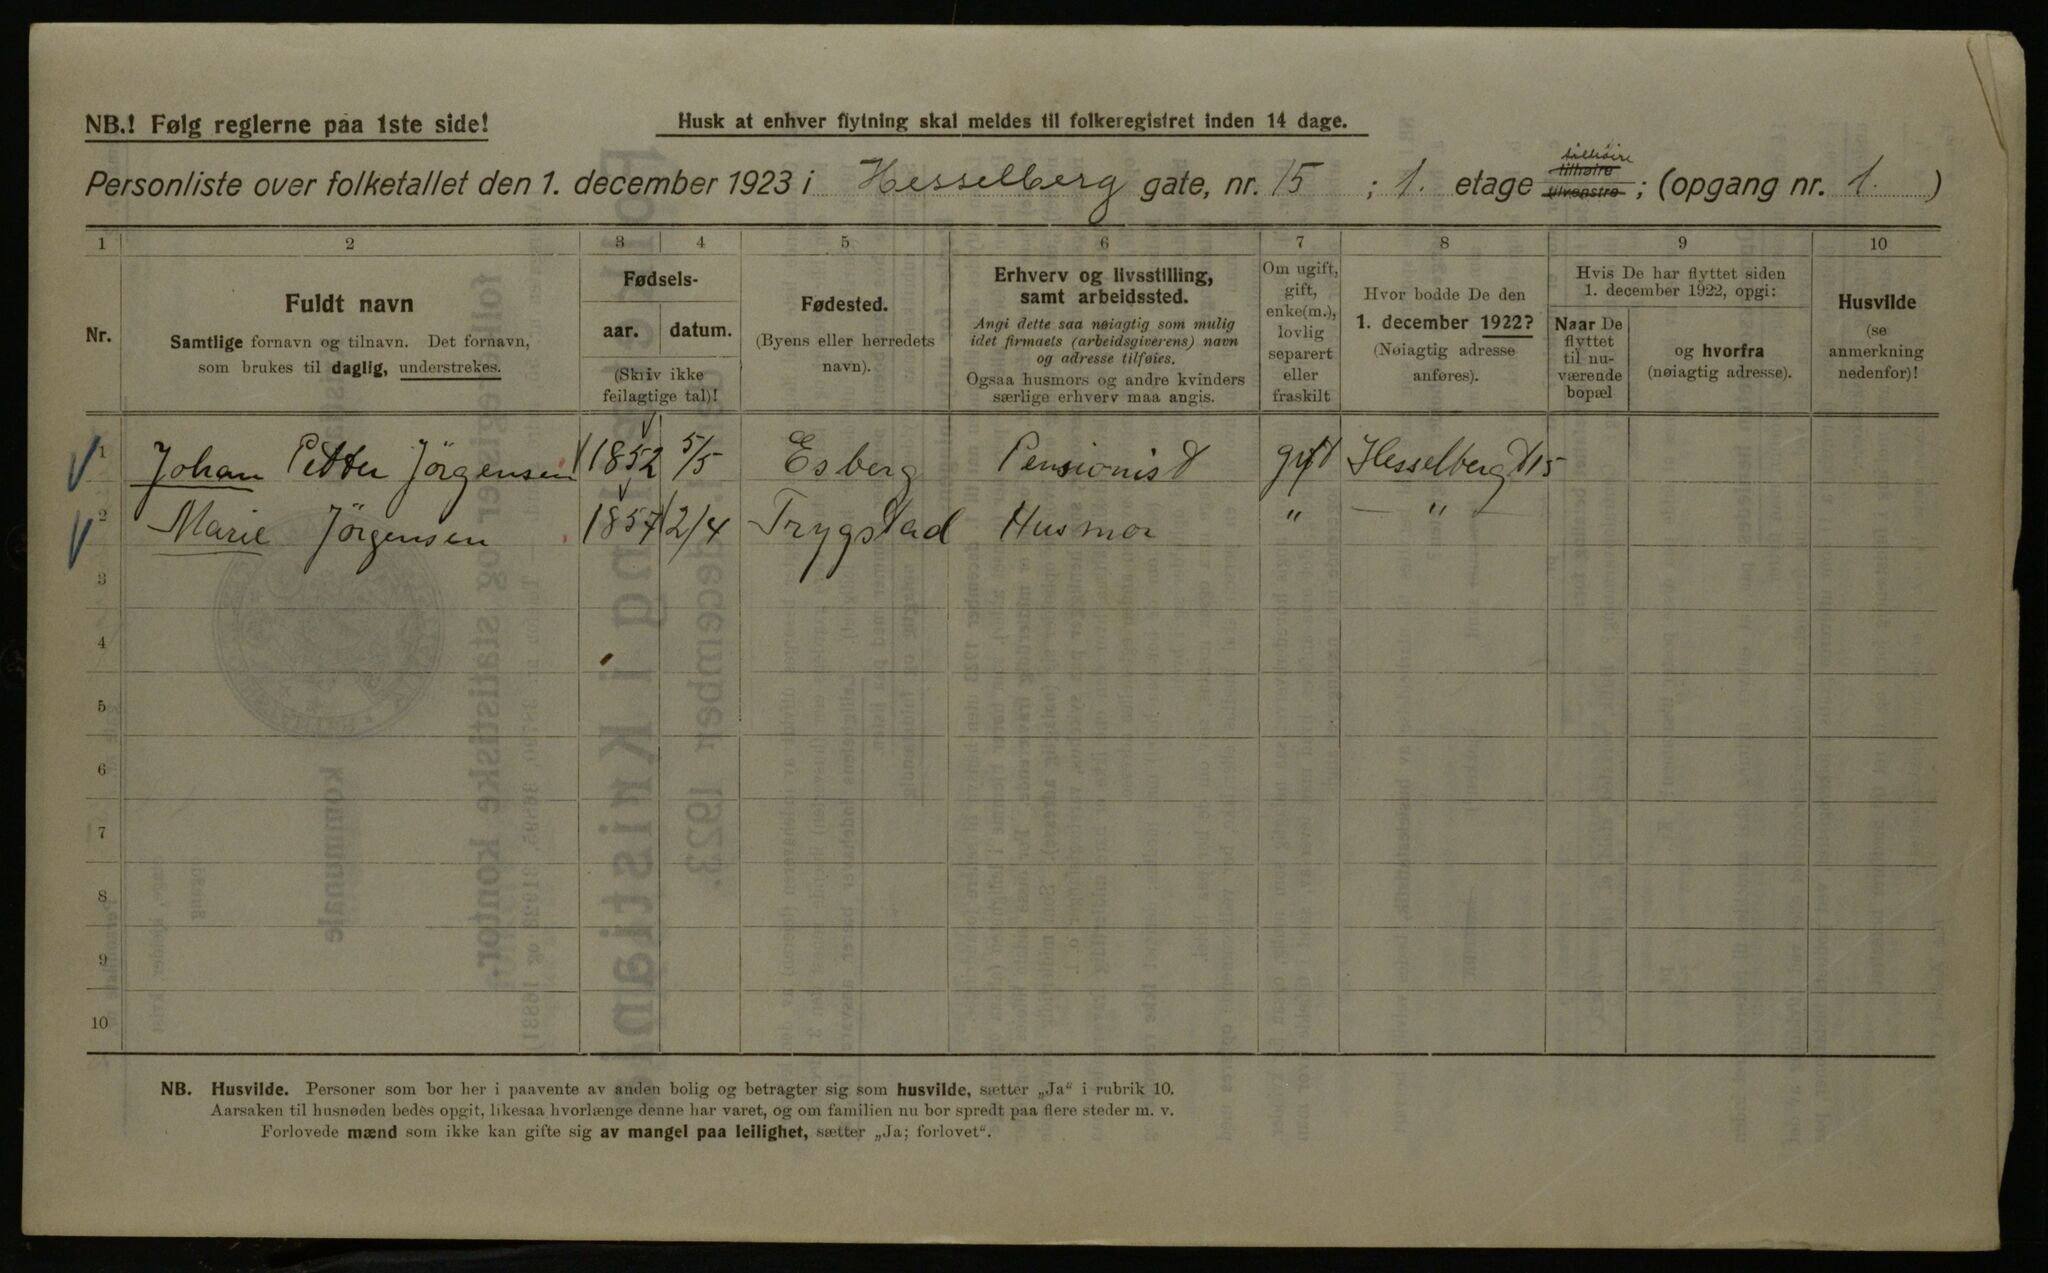 NB.! Følg reglerne paa 1ste side!
Husk at enhver flytning skal meldes til folkeregistret inden 14 dage.
tilhøire
Personliste over folketallet den 1. december 1923 i Hesselberg gate, nr. 15 ; 1. etage tilhøire tilvenstre ; (opgang nr. 1. )
1 2 3 4 5 6 7 8 9 10
Nr.
Fuldt navn
Samtlige fornavn og tilnavn. Det fornavn,
som brukes til daglig, understrekes.
Fødsels-
aar. datum.
(Skriv ikke
feilagtige tal)!
Fødested.
(Byens eller herredets
navn).
Erhverv og livsstilling,
samt arbeidssted.
Angi dette saa nøiagtig som mulig
idet firmaets (arbeidsgiverens) navn
og adresse tilføies.
Ogsaa husmors og andre kvinders
særlige erhverv maa angis.
Om ugift,
gift,
enke(m.),
lovlig
separert
eller
fraskilt
Hvor bodde De den
1. december 1922?
(Nøiagtig adresse
anføres).
Hvis De har flyttet siden
1. december 1922, opgi:
Naar De
flyttet
til nu-
værende
bopæl
og hvorfra
(nøiagtig adresse).
Husvilde
(se
anmerkning
nedenfor)!
1 Johan Petter Jörgensen 1852 5/5 Esberg Pensionist gift Hesselbergt 15
2 Marie Jörgensen 1857 2/4 Trygstad Husmor „ — „ —
3
4
5
6
7
8
9
10
NB. Husvilde. Personer som bor her i paavente av anden bolig og betragter sig som husvilde, sætter „Ja“ i rubrik 10.
Aarsaken til husnøden bedes opgit, likesaa hvorlænge denne har varet, og om familien nu bor spredt paa flere steder m. v.
Forlovede mænd som ikke kan gifte sig av mangel paa leilighet, sætter „Ja; forlovet“.